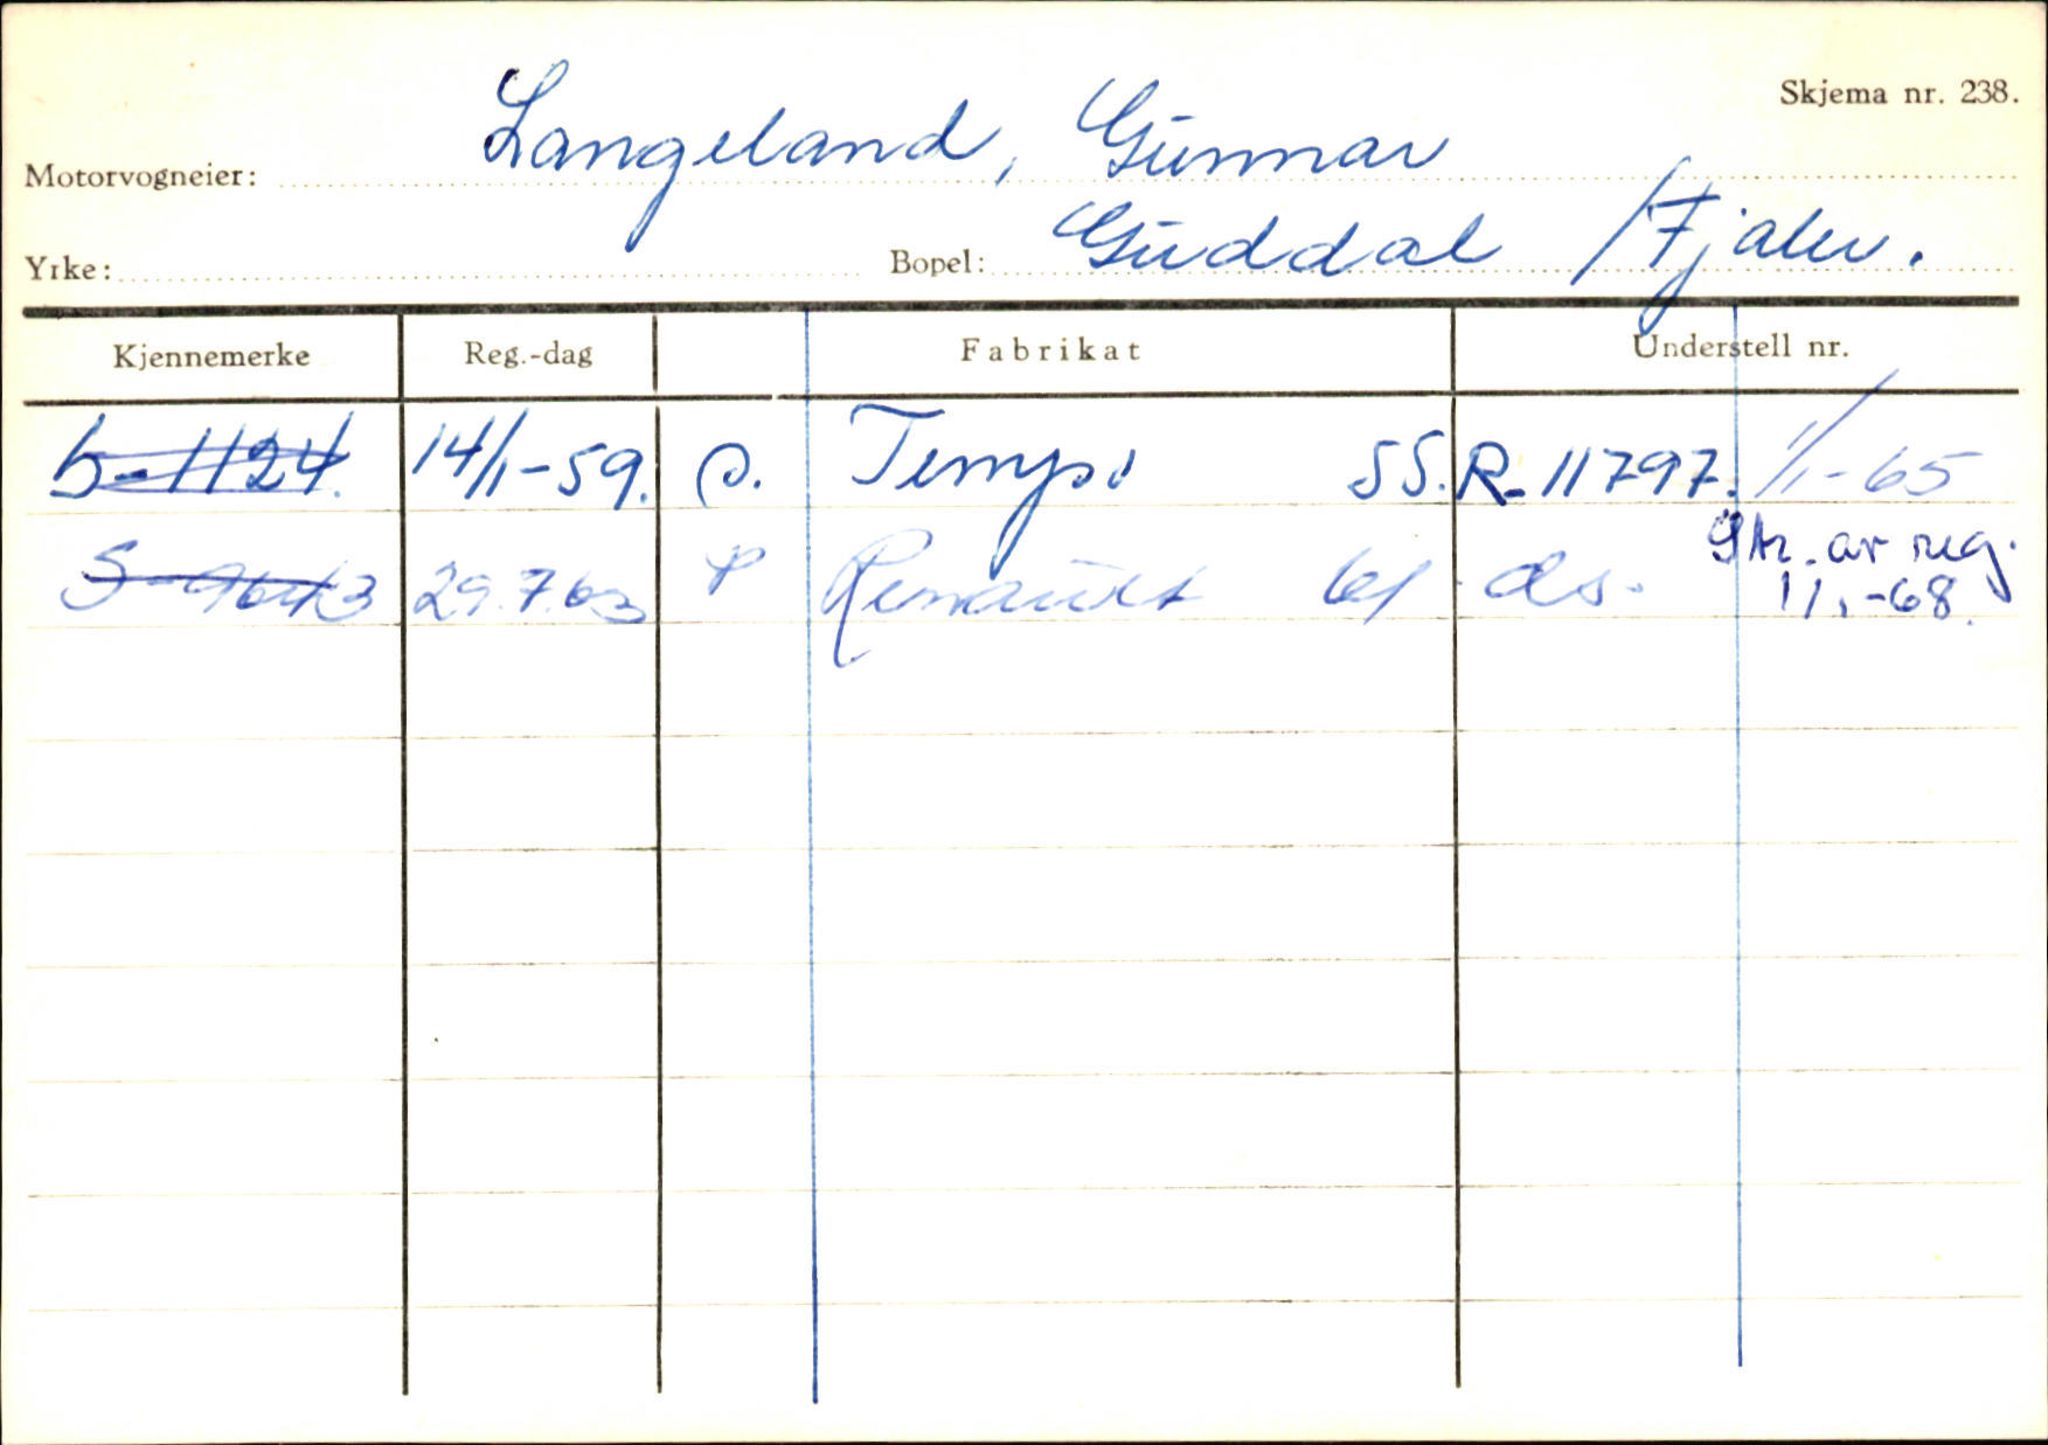 Skjema nr. 238.
Motorvogneier: Langeland, Gunnar
Yrke: Bopel: Guddal / Fjaler.
Kjennemerke Reg.-dag Fabrikat Understell nr.
S-1124. 14/1-59. Tempo 55. R-11797. 1/1-65
S-9643 29.7.63 P Renault 61 ds. Str. av reg.
1/1-68.